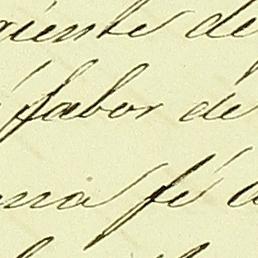 giente de
fabor de
ena fé